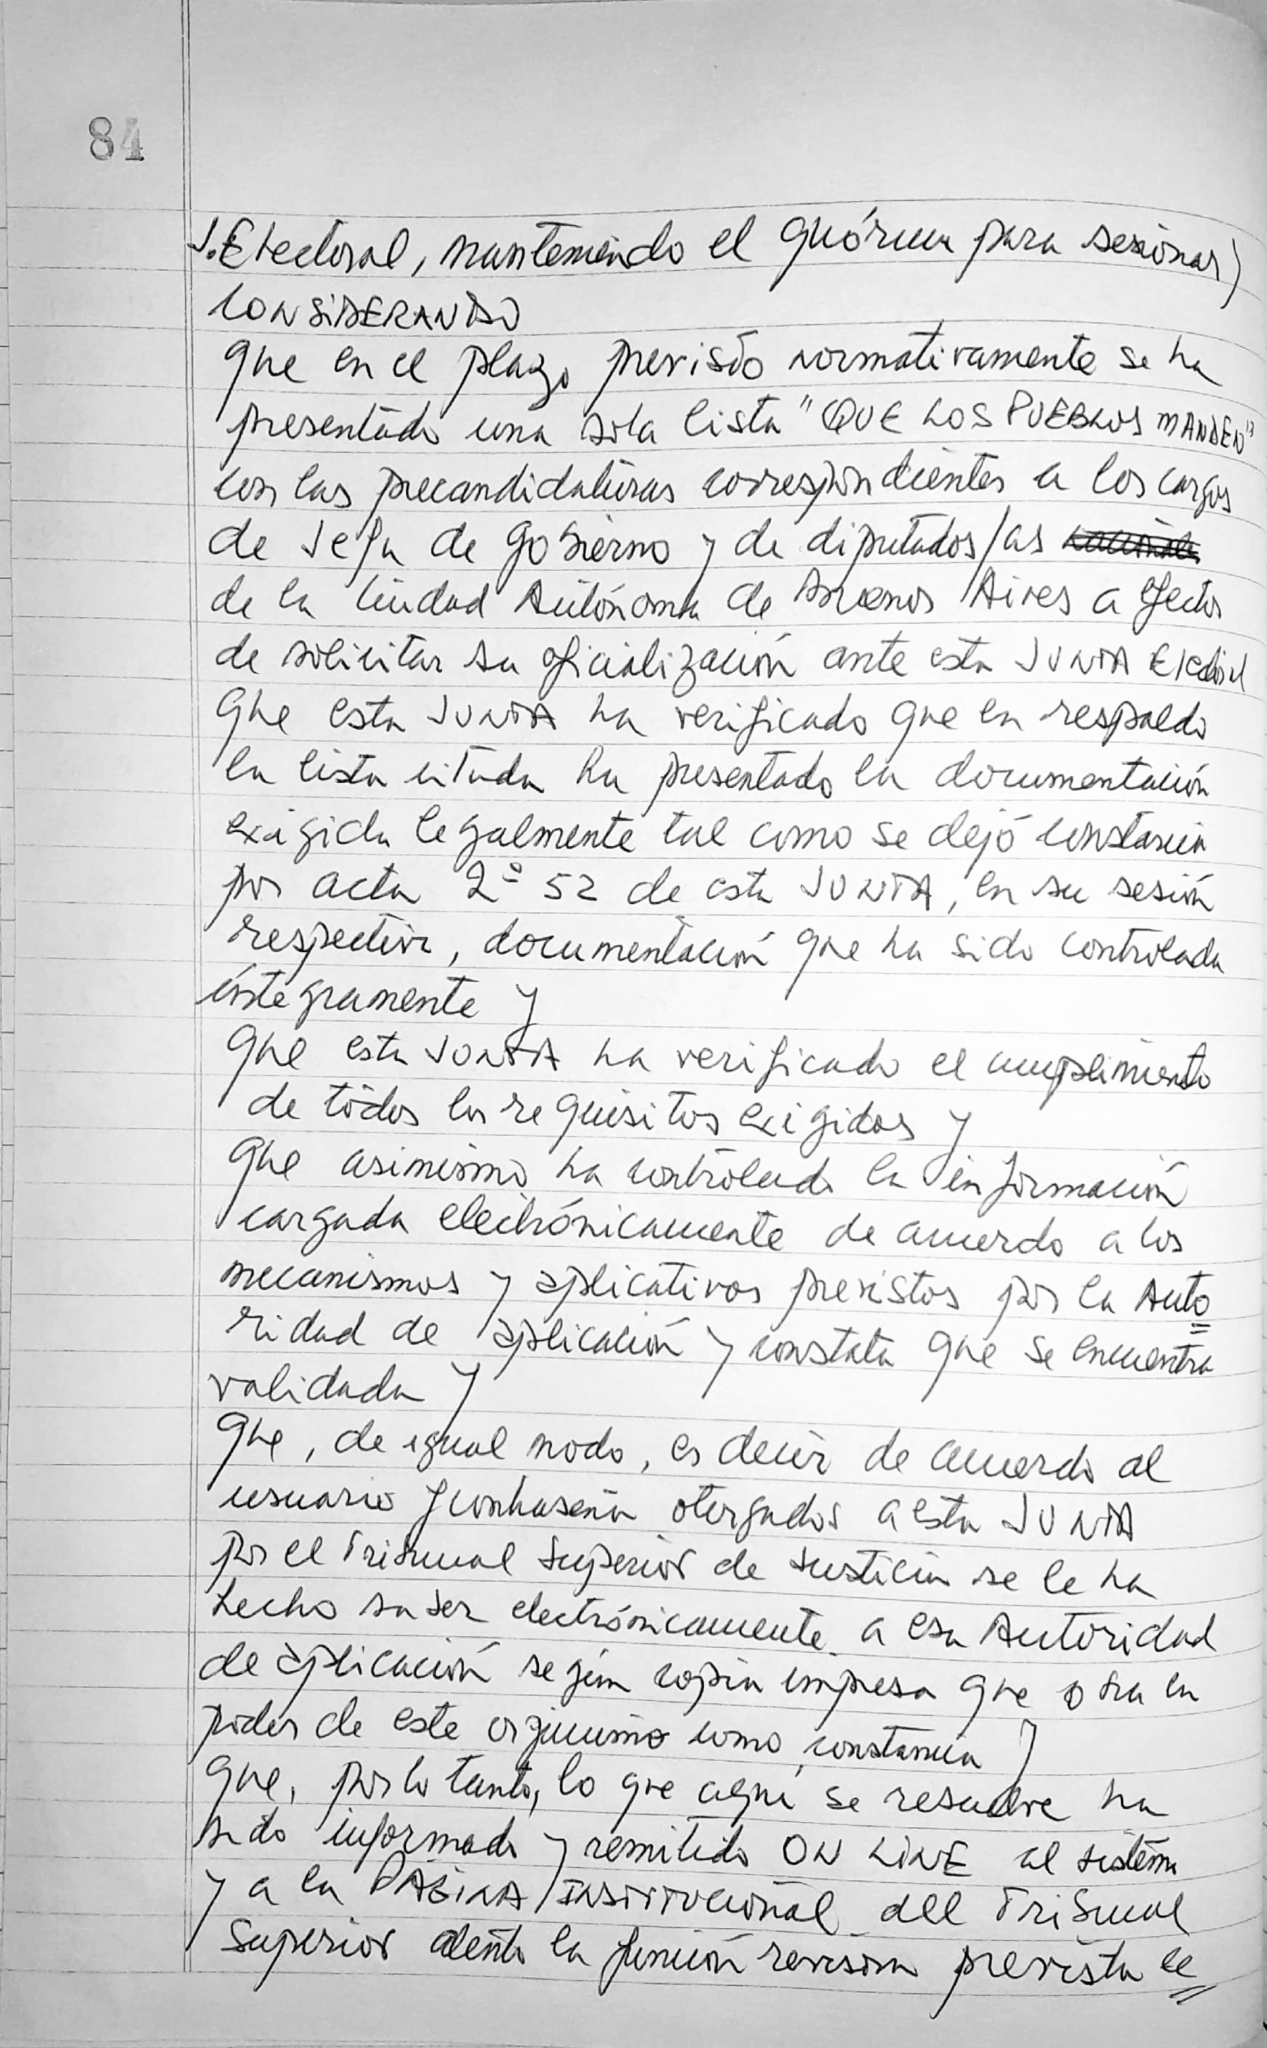 84
J. Electoral, manteniendo el quórum para sesionar)
CONSIDERANDO
que en el plazo previsto normativamente se ha
presentado una sola lista "QUE LOS PUEBLOS MANDEN"
con las precandidaturas correspondientes a los cargos
de Jefa de Gobierno y de diputados/as
de la Ciudad Autónoma de Buenos Aires a efectos
de solicitar su oficialización ante esta JUNTA Electoral
Que esta JUNTA ha verificado que en respaldo
la lista citada ha presentado la documentación
exigida legalmente tal como se dejó constancia
por acta 2º 52 de esta JUNTA, en su sesión
respectiva, documentación que ha sido controlada
íntegramente y
Que esta JUNTA ha verificado el cumplimiento
de todos los requisitos exigidos y
Que asimismo ha controlado la información
cargada electrónicamente de acuerdo a los
mecanismos y aplicativos previstos por la Auto=
ridad de aplicación y constata que se encuentra
validada y
Que, de igual modo, es decir de acuerdo al
usuario y contraseña otorgados a esta JUNTA
por el Tribunal Superior de Justicia se le ha
hecho saber electrónicamente a esa Autoridad
de aplicación según copia impresa que obra en
poder de este organismo como constancia y
Que, por lo tanto, lo que aquí se resuelve ha
sido informado y remitido ON LINE al sistema
y a la PÁGINA INSTITUCIONAL del Tribunal
Superior atento la función revisora prevista